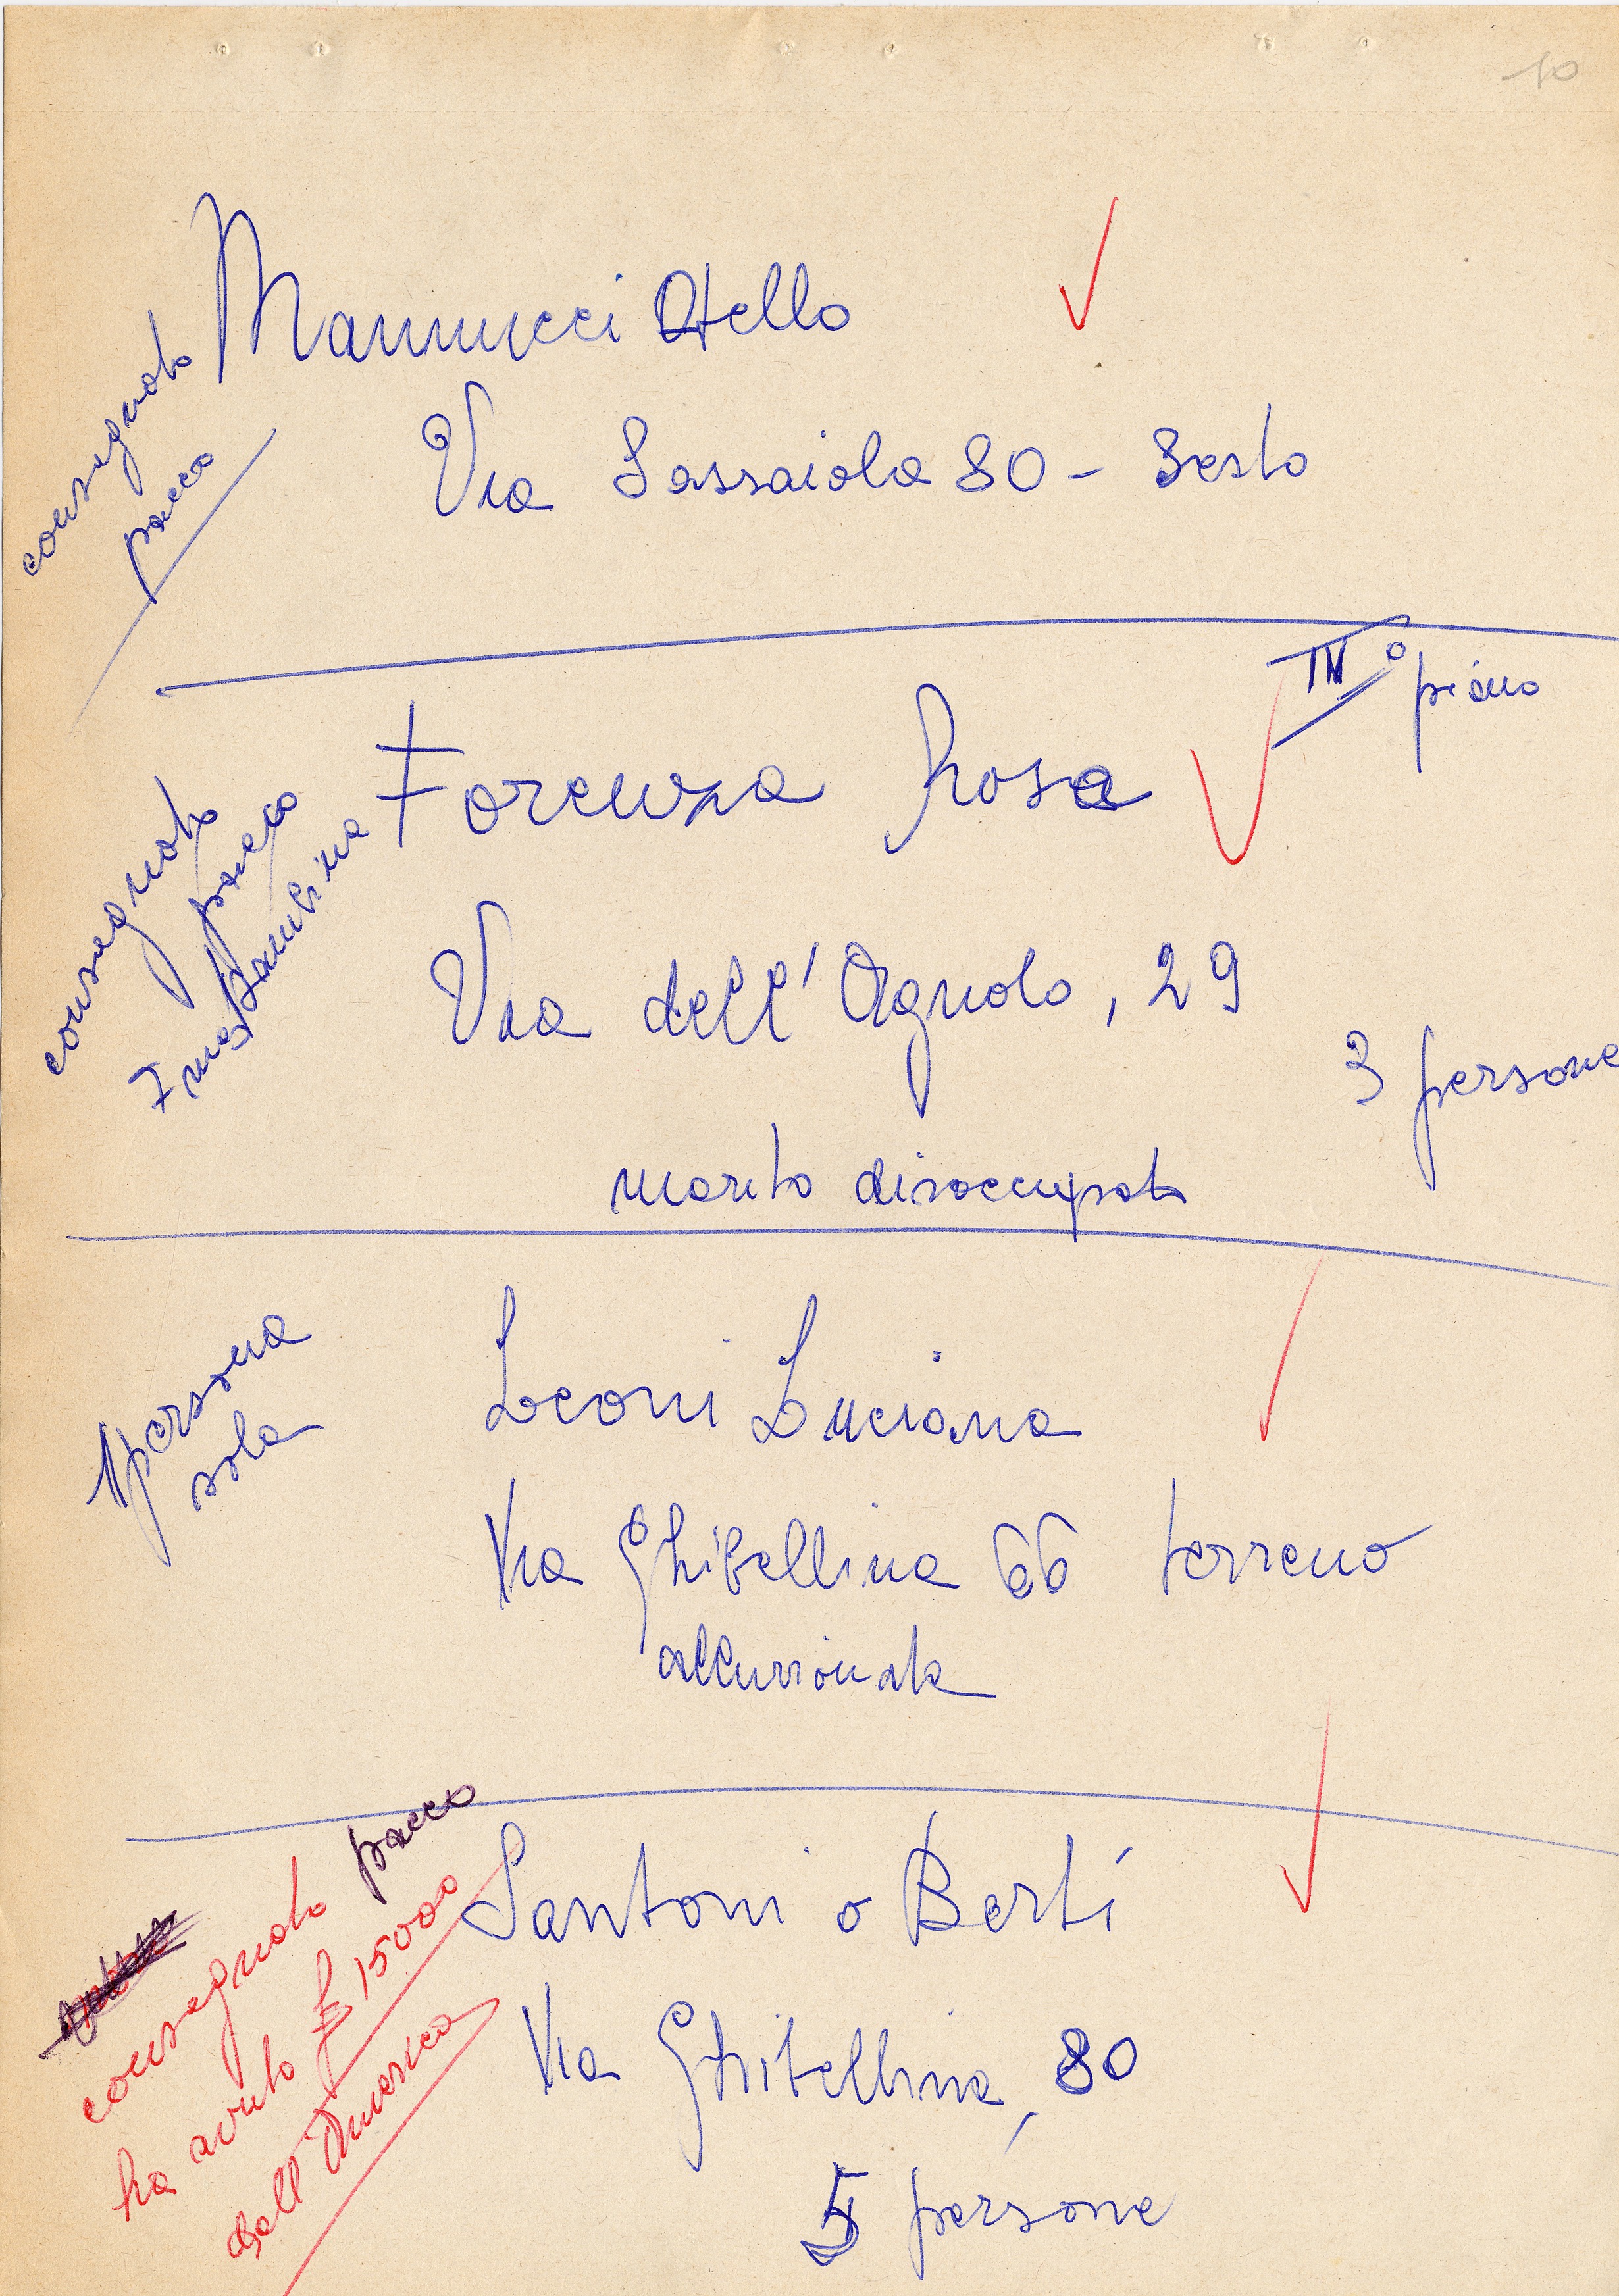 10
Mannucci Otello
consegnato
pacco
Via Sassaiola 80 - Sesto
IV° piano
Forenza Rosa
consegnato
pacco
7 mesi bambina
Via dell'Agnolo, 29
3 persone
marito disoccupato
Leoni Luciana
1 persona
sola
Via Ghibellina 66 terreno
alluvionata
Santoni o Berti
consegnato pacco
ha avuto £ 15000
dall'America
Via Ghibellina, 80
5 persone